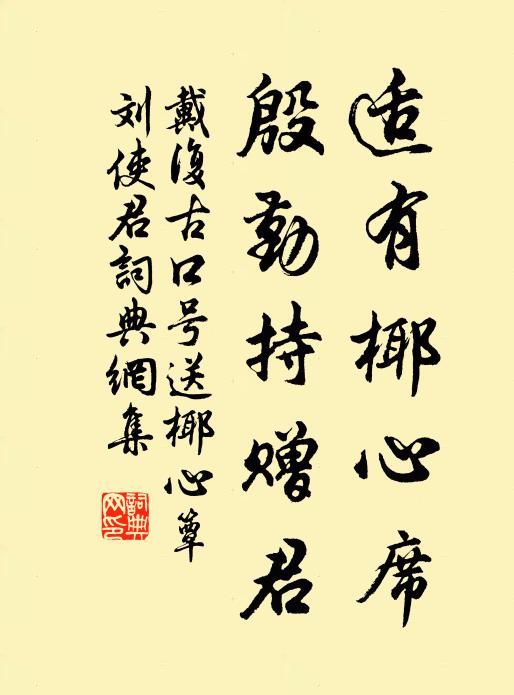 适有椰心席
殷勤持赠君
戴復古口号送椰心簟
刘使君詞典網集
詞典网印